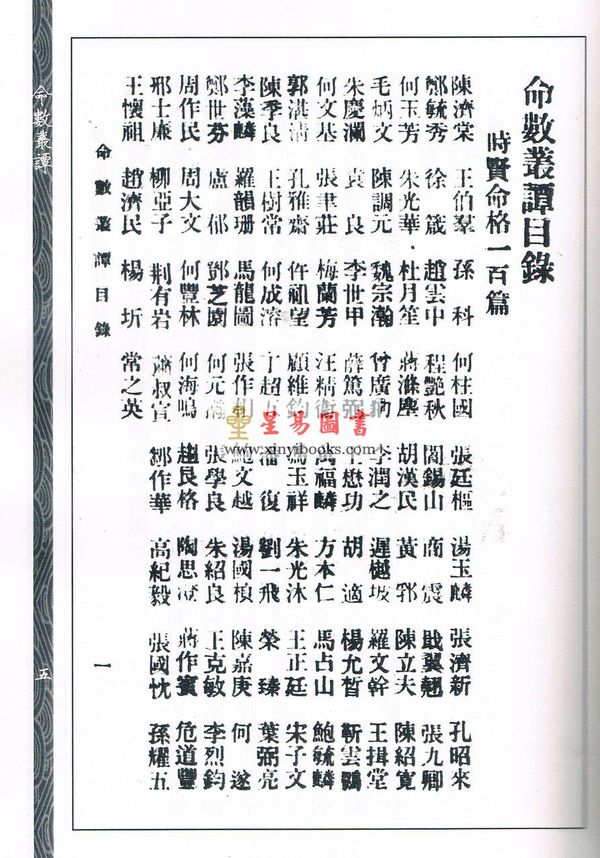 命數叢譚目錄
時賢命格一百篇
陳濟棠 王伯羣 孫科 何柱國 張廷樞 湯玉麟 張濟新 孔昭來
鄭毓秀 徐箴 趙雲中 程艷秋 閻錫山 商震 戢翼翹 張九卿
何玉芳 朱光華 杜月笙 蔣滌塵 胡漢民 黃郛 陳立夫 陳紹寬
毛炳文 陳調元 魏宗瀚 曾廣 李潤之 遲樾坡 羅文幹 王揖堂
朱慶瀾 袁良 李世甲 薛篤弼 王懋功 胡適 楊允晳 靳雲鶚
何文基 張聿莊 梅蘭芳 汪精衛 萬福麟 方本仁 馬占山 鮑毓麟
郭淇清 孔雅齋 仵祖望 顧維鈞 馮玉祥 朱光沐 王正廷 宋子文
陳季良 王樹常 何成溶 丁超五 潘復 劉一飛 榮臻 葉弼亮
李藻麟 羅韻珊 馬龍圖 張作 鮑文越 湯國楨 陳嘉庚 何遂
鄭世芬 盧郁 鄧芝園 何元 張學良 朱紹良 王克敏 李烈鈞
周作民 周大文 何豐林 何海鳴 趙良格 陶思澄 蔣作賓 危道豐
邢士廉 柳亞子 荆有岩 蕭叔宣 鄒作華 高紀毅 張國忱 孫耀五
王懷祖 趙濟民 楊圻 常之英
命數叢譚目錄 一
命數叢譚 五
星易圖書
www.xinyibooks.com